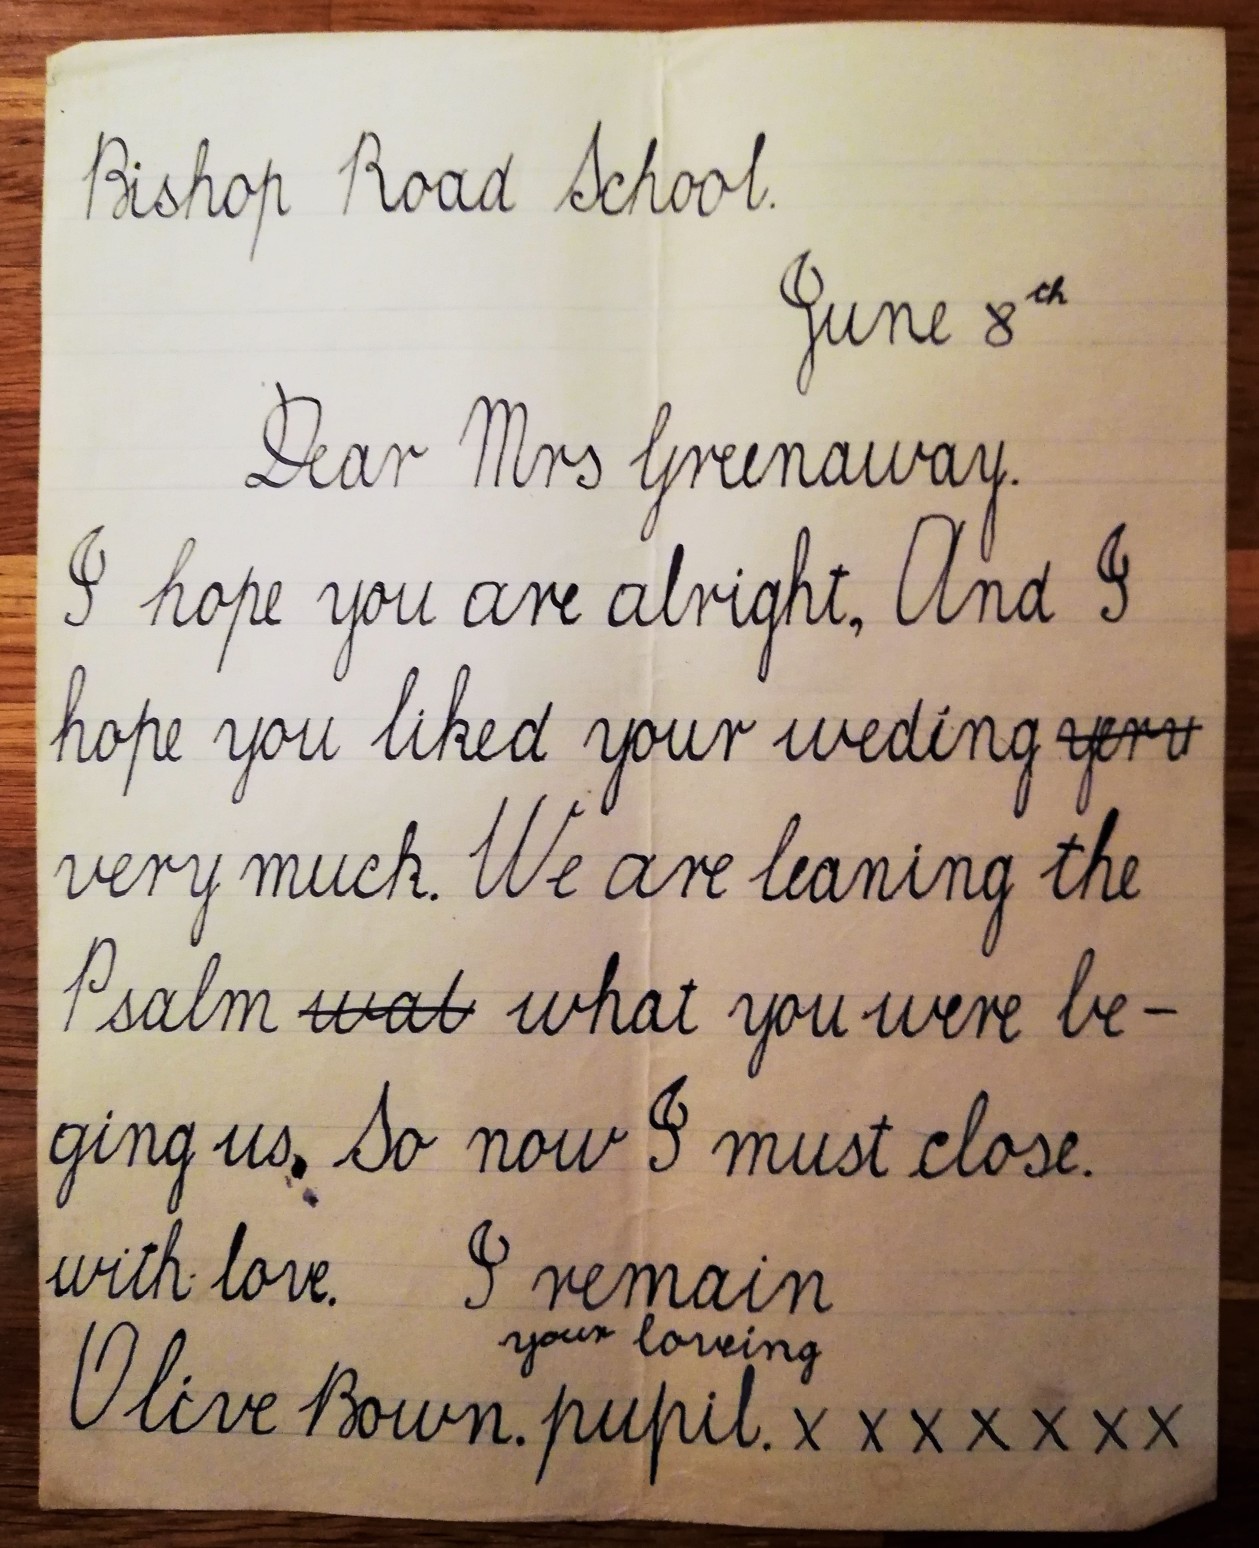 Bishop Road School.
June 8th
Dear Mrs Greenaway.
I hope you are alright, And I
hope you liked your weding yeru
very much. We are leaning the
Psalm wat what you were be-
ging us. So now I must close.
with love. I remain
your loveing
Olive Bown. pupil. x x x x x x x